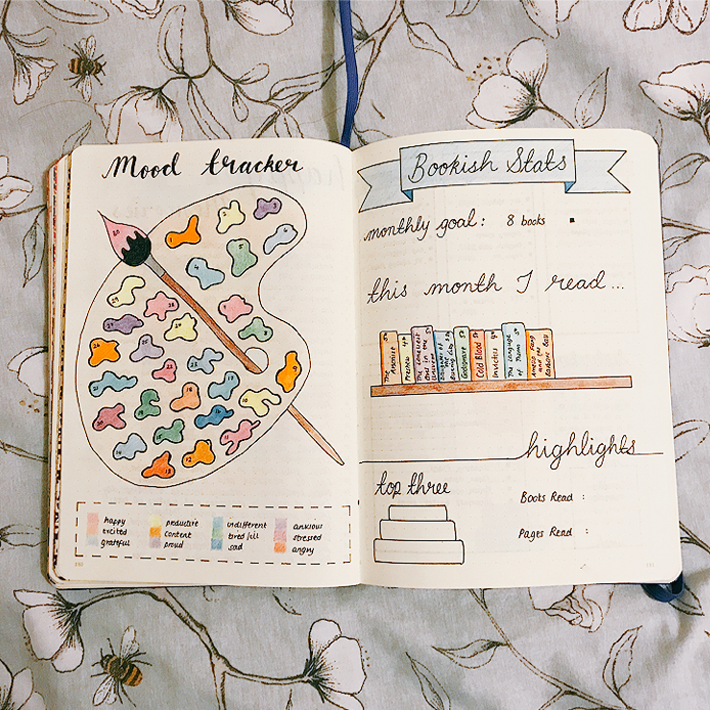 Mood tracker
happy
excited
grateful
productive
content
proud
indifferent
tired / ill
sad
anxious
stressed
angry
Bookish Stats
monthly goal: 8 books
this month I read ...
The
Preview
The Loneliest
Girl in the
Universe
Godsgrave
Cold Blood
Invictus
The Language
of Thorns
highlights
top three
Books Read :
Pages Read :